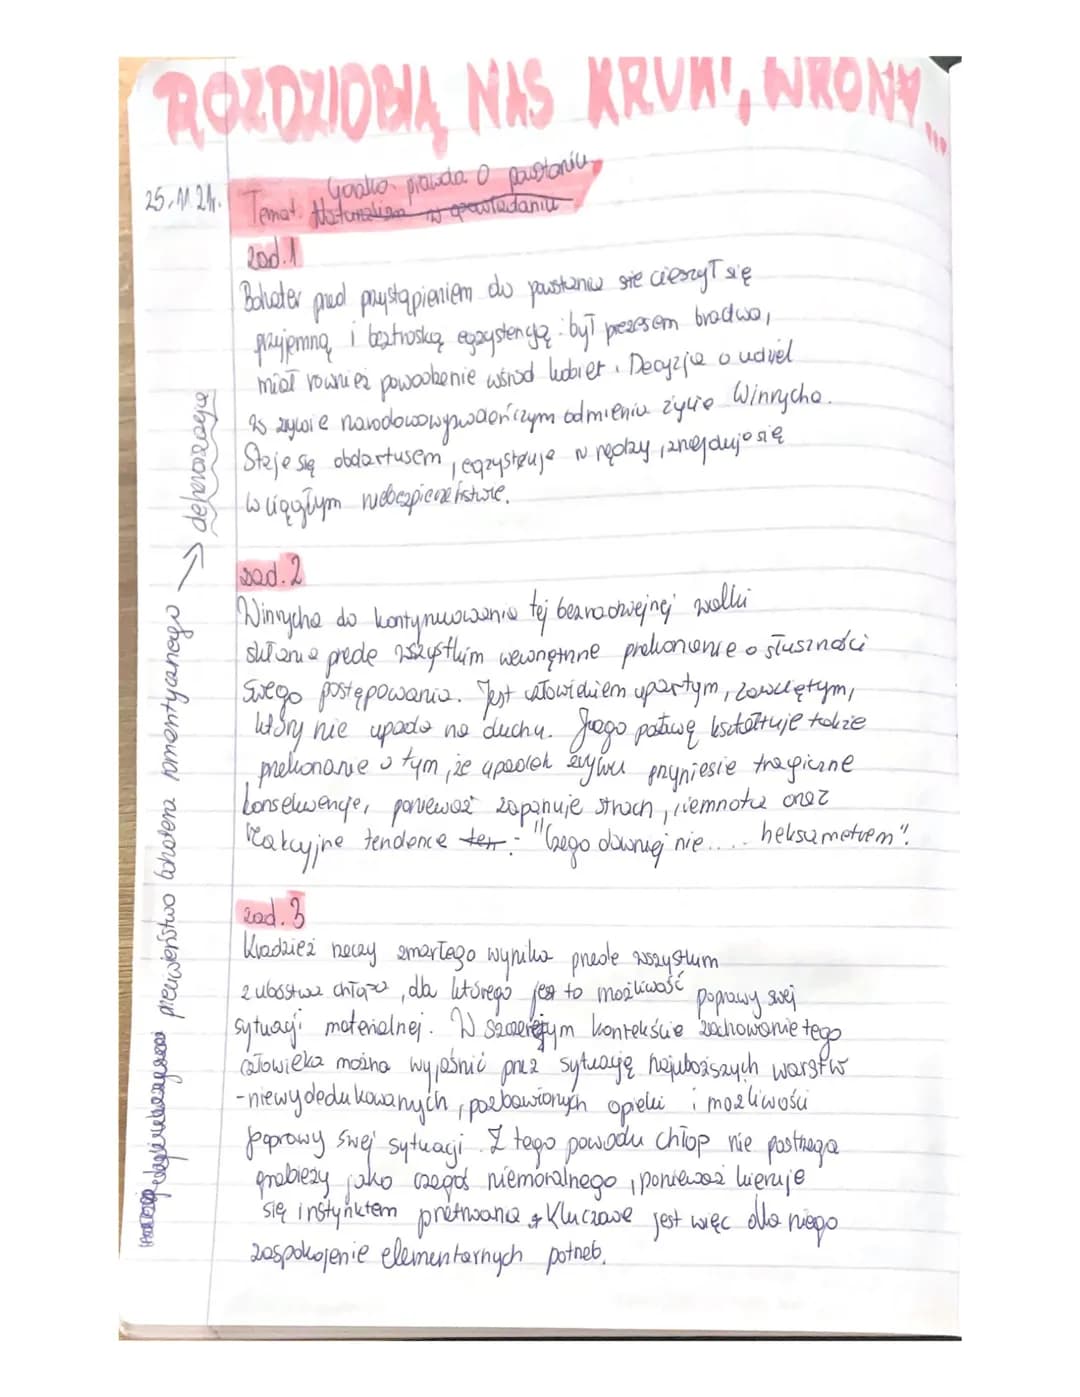 ROZDZIOBIĄ NAS KRUKI, WRONY...
25.11.21r.
Gorzka prawda o powstaniu
Temat: Naturalizm w opowiadaniu
zad.1
Bohater przed przystąpieniem do powstania sie cieszył się
przyjemną i beztroską egzystencją: był prezesem bractwa,
miał również powodzenie wśród kobiet. Decyzja o udziel
w zrywie narodowowyzwoleńczym odmienia życie Winrycha.
Staje się obdartusem, egzystuje w nędzy, znajduje się
w ciągłym niebezpieczeństwie.
zad.2
Winrycha do kontynuowania tej beznadziejnej walki
skłania przede wszystkim wewnętrzne przekonanie o słuszności
swego postępowania. Jest człowiekiem upartym, zawziętym,
który nie upada na duchu. Jego postawę kształtuje także
przekonanie o tym, że upadek zrywu przyniesie tragiczne
konsekwencje, ponieważ zapanuje strach, ciemnota oraz
reakcyjne tendencje ten: "Czego dawniej nie..... heksametrem".
zad.3
Kradzież rzeczy zmarłego wynika przede wszystkim
z ubóstwa chłopa, dla którego jest to możliwość poprawy swej
sytuacji materialnej. W szerszym kontekście zachowanie tego
człowieka można wyjaśnić przez sytuację najuboższych warstw
-niewyedukowanych, pozbawionych opieki i możliwości
poprawy swej sytuacji. Z tego powodu chłop nie postrzega
grabieży jako czegoś niemoralnego, ponieważ kieruje
się instynktem przetrwania. Kluczowe jest więc dla niego
zaspokojenie elementarnych potrzeb.
przeciwieństwo bohatera romantycznego → deheroizacja